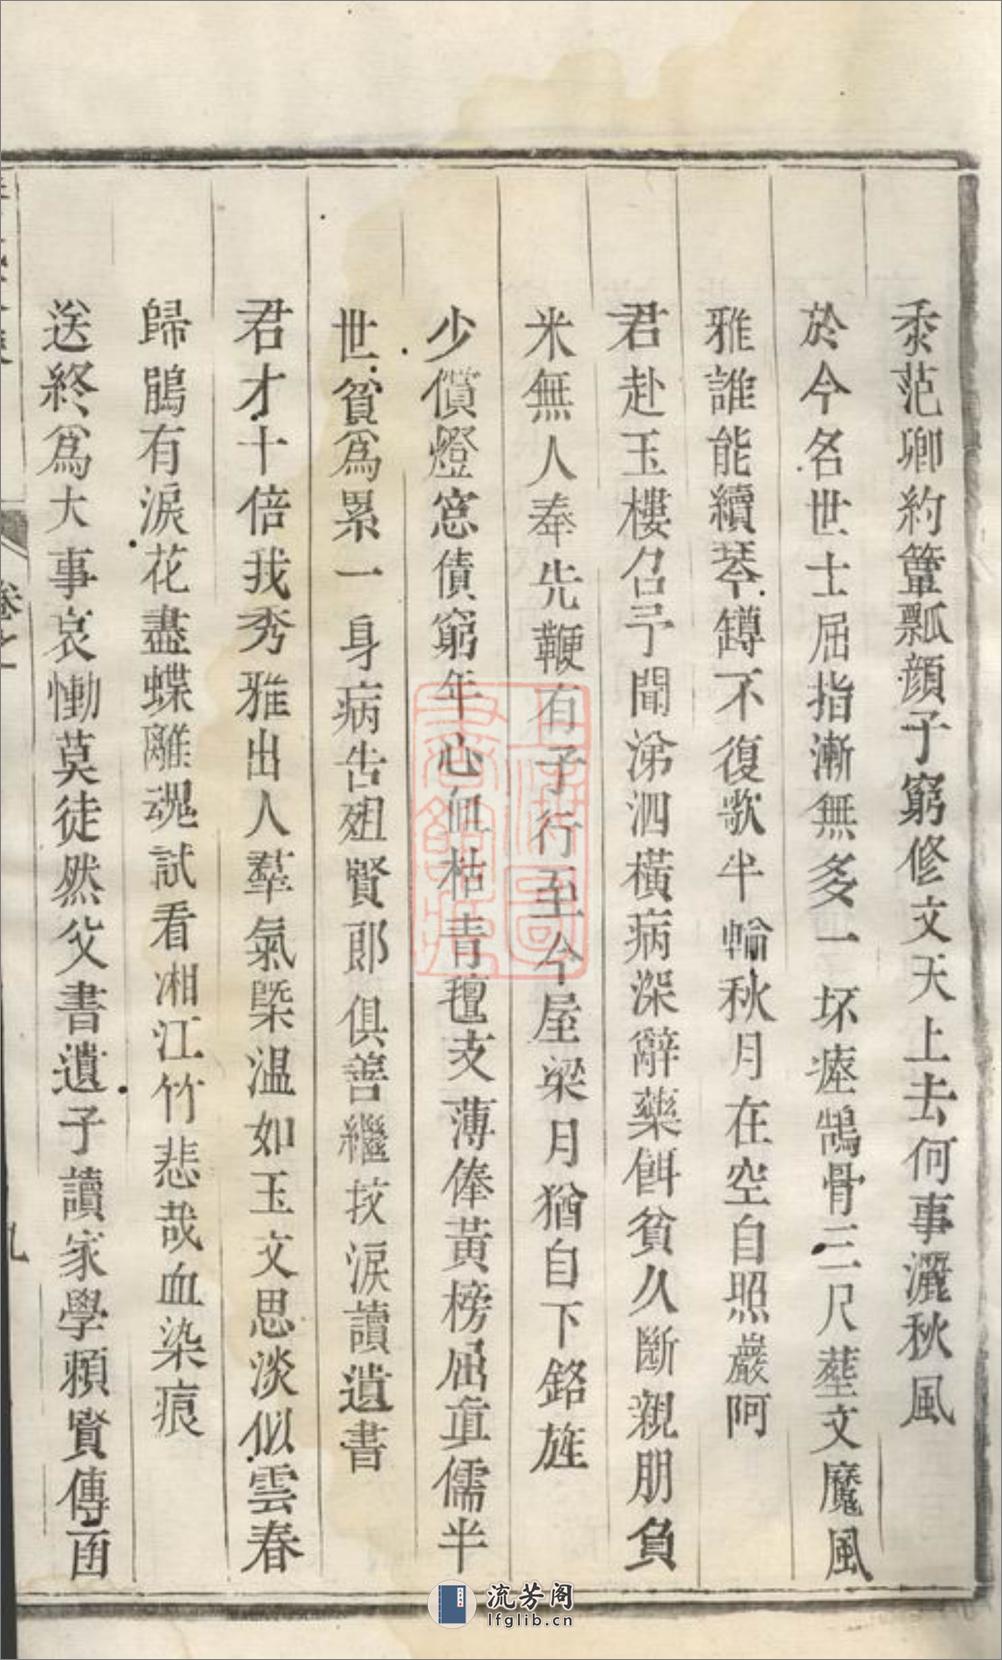 黍范卿約簞瓢顏子窮修文天上去何事灑秋風
於今名世士屈指漸無多一坏瘞鵠骨三尺塟文魔風
雅誰能續琴罇不復歌半輪秋月在空自照巖阿
君赴玉樓召予聞涕泗橫病深辭藥餌貧久斷親朋負
米無人奉先鞭有子行至今屋梁月猶自下銘旌
少償燈窓債窮年心血枯青氊支薄俸黃榜屈眞儒半
世貧爲累一身病吿殂賢郎俱善繼抆淚讀遺書
君才十倍我秀雅出人羣氣槩温如玉文思淡似雲春
歸鵑有淚花盡蝶離魂試看湘江竹悲哉血染痕
送終爲大事哀慟莫徒然父書遺子讀家學頼賢傳函
卷之一
九
流芳阁
lfglib.cn